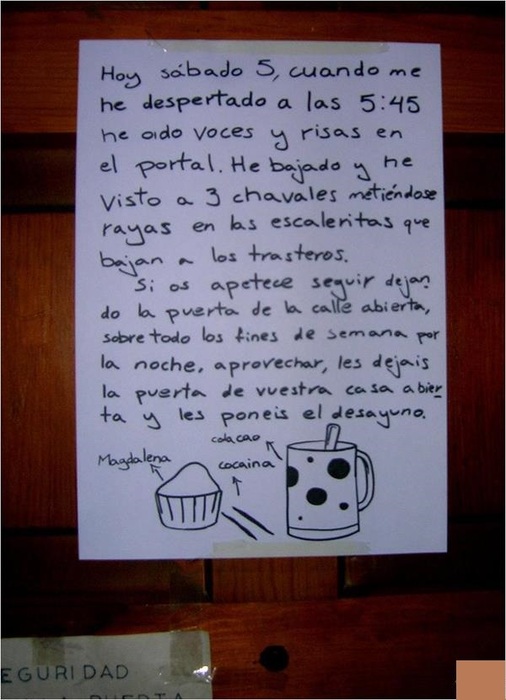 Hoy sábado 5, cuando me
he despertado a las 5:45
he oido voces y risas en
el portal. He bajado y he
visto a 3 chavales metiéndose
rayas en las escaleritas que
bajan a los trasteros.
Si os apetece seguir dejan
do la puerta de la calle abierta,
sobre todo los fines de semana por
la noche, aprovechar, les dejais
la puerta de vuestra casa abier
ta y les poneis el desayuno.
colacao
Magdalena
cocaina
EGURIDAD
PUERTA